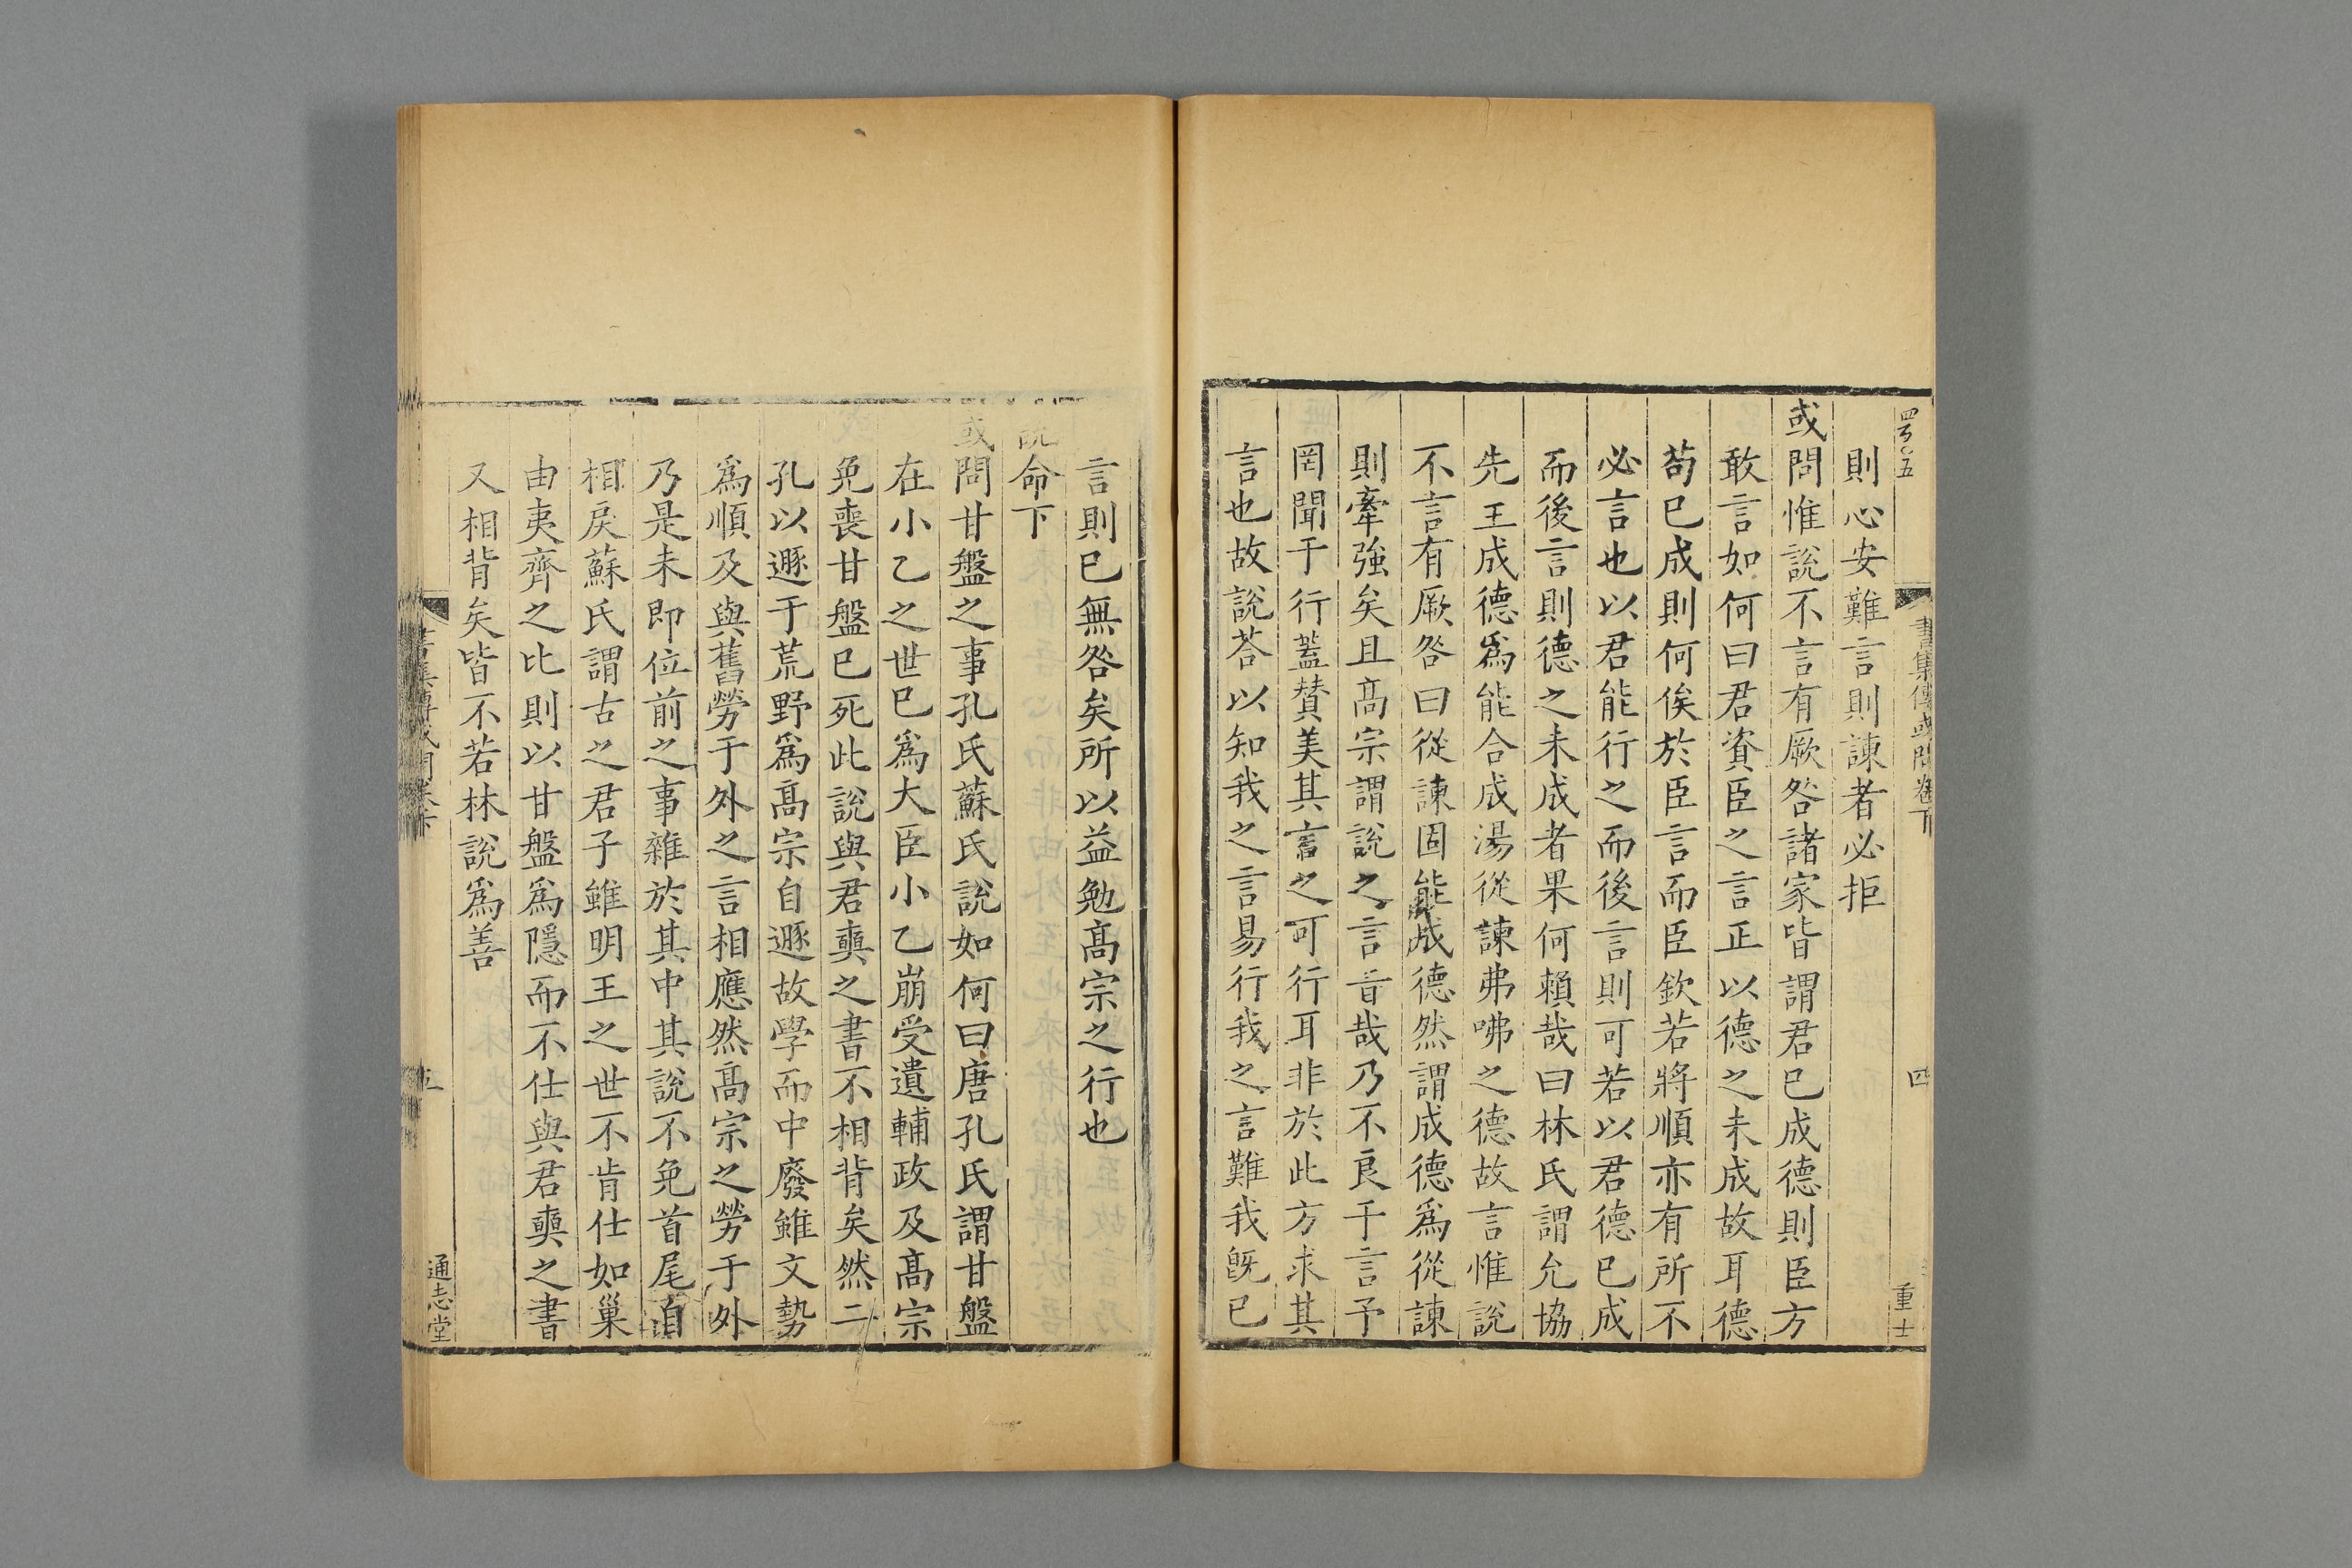 書集傳或問卷下
四
重士
則心安難言則諫者必拒
或問惟說不言有厥咎諸家皆謂君已成德則臣方
敢言如何曰君資臣之言正以德之未成故耳德
茍已成則何俟於臣言而臣欽若將順亦有所不
必言也以君能行之而後言則可若以君德已成
而後言則德之未成者果何賴哉曰林氏謂允協
先王成德爲能合成湯從諫弗咈之德故言惟說
不言有厥咎曰從諫固能成德然謂成德爲從諫
則牽強矣且髙宗謂說之言旨哉乃不良于言予
罔聞于行蓋賛美其言之可行耳非於此方求其
言也故說荅以知我之言易行我之言難我旣已
言則已無咎矣所以益勉髙宗之行也
說命下
或問甘盤之事孔氏蘇氏說如何曰唐孔氏謂甘盤
在小乙之世已爲大臣小乙崩受遺輔政及髙宗
免喪甘盤已死此說與君奭之書不相背矣然二
孔以遯于荒野爲髙宗自遯故學而中廢雖文勢
爲順及與舊勞于外之言相應然髙宗之勞于外
乃是未即位前之事雜於其中其說不免首尾自
相戾蘇氏謂古之君子雖明王之世不肯仕如巢
由夷齊之比則以甘盤爲隱而不仕與君奭之書
又相背矣皆不若林說爲善
五
通志堂